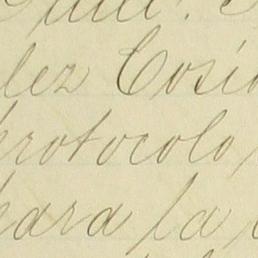 lez Cosio
protocolo,
para la